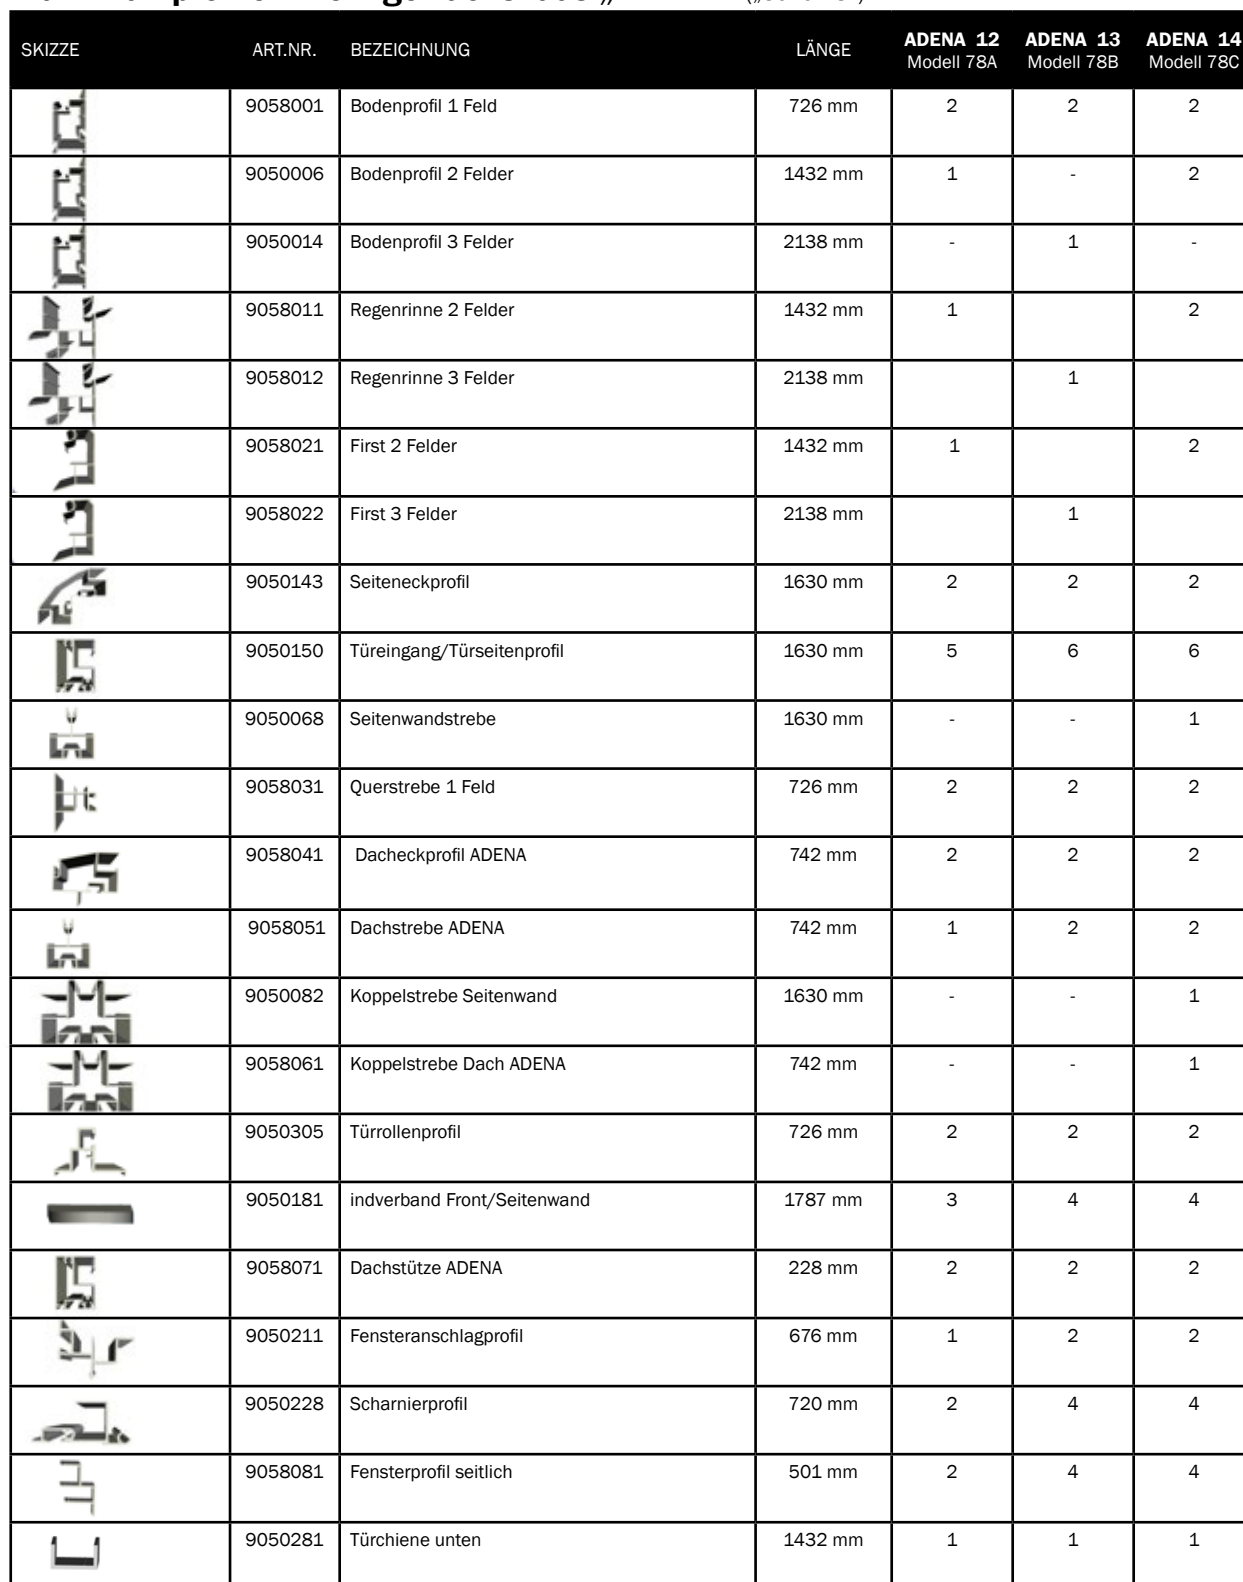 SKIZZE ART.NR. BEZEICHNUNG LÄNGE ADENA 12 ADENA 13 ADENA 14
Modell 78A Modell 78B Modell 78C
9058001 Bodenprofil 1 Feld 726 mm 2 2 2
9050006 Bodenprofil 2 Felder 1432 mm 1 - 2
9050014 Bodenprofil 3 Felder 2138 mm - 1 -
9058011 Regenrinne 2 Felder 1432 mm 1 2
9058012 Regenrinne 3 Felder 2138 mm 1
9058021 First 2 Felder 1432 mm 1 2
9058022 First 3 Felder 2138 mm 1
9050143 Seiteneckprofil 1630 mm 2 2 2
9050150 Türeingang/Türseitenprofil 1630 mm 5 6 6
9050068 Seitenwandstrebe 1630 mm - - 1
9058031 Querstrebe 1 Feld 726 mm 2 2 2
9058041 Dacheckprofil ADENA 742 mm 2 2 2
9058051 Dachstrebe ADENA 742 mm 1 2 2
9050082 Koppelstrebe Seitenwand 1630 mm - - 1
9058061 Koppelstrebe Dach ADENA 742 mm - - 1
9050305 Türrollenprofil 726 mm 2 2 2
9050181 indverband Front/Seitenwand 1787 mm 3 4 4
9058071 Dachstütze ADENA 228 mm 2 2 2
9050211 Fensteranschlagprofil 676 mm 1 2 2
9050228 Scharnierprofil 720 mm 2 4 4
9058081 Fensterprofil seitlich 501 mm 2 4 4
9050281 Türchiene unten 1432 mm 1 1 1